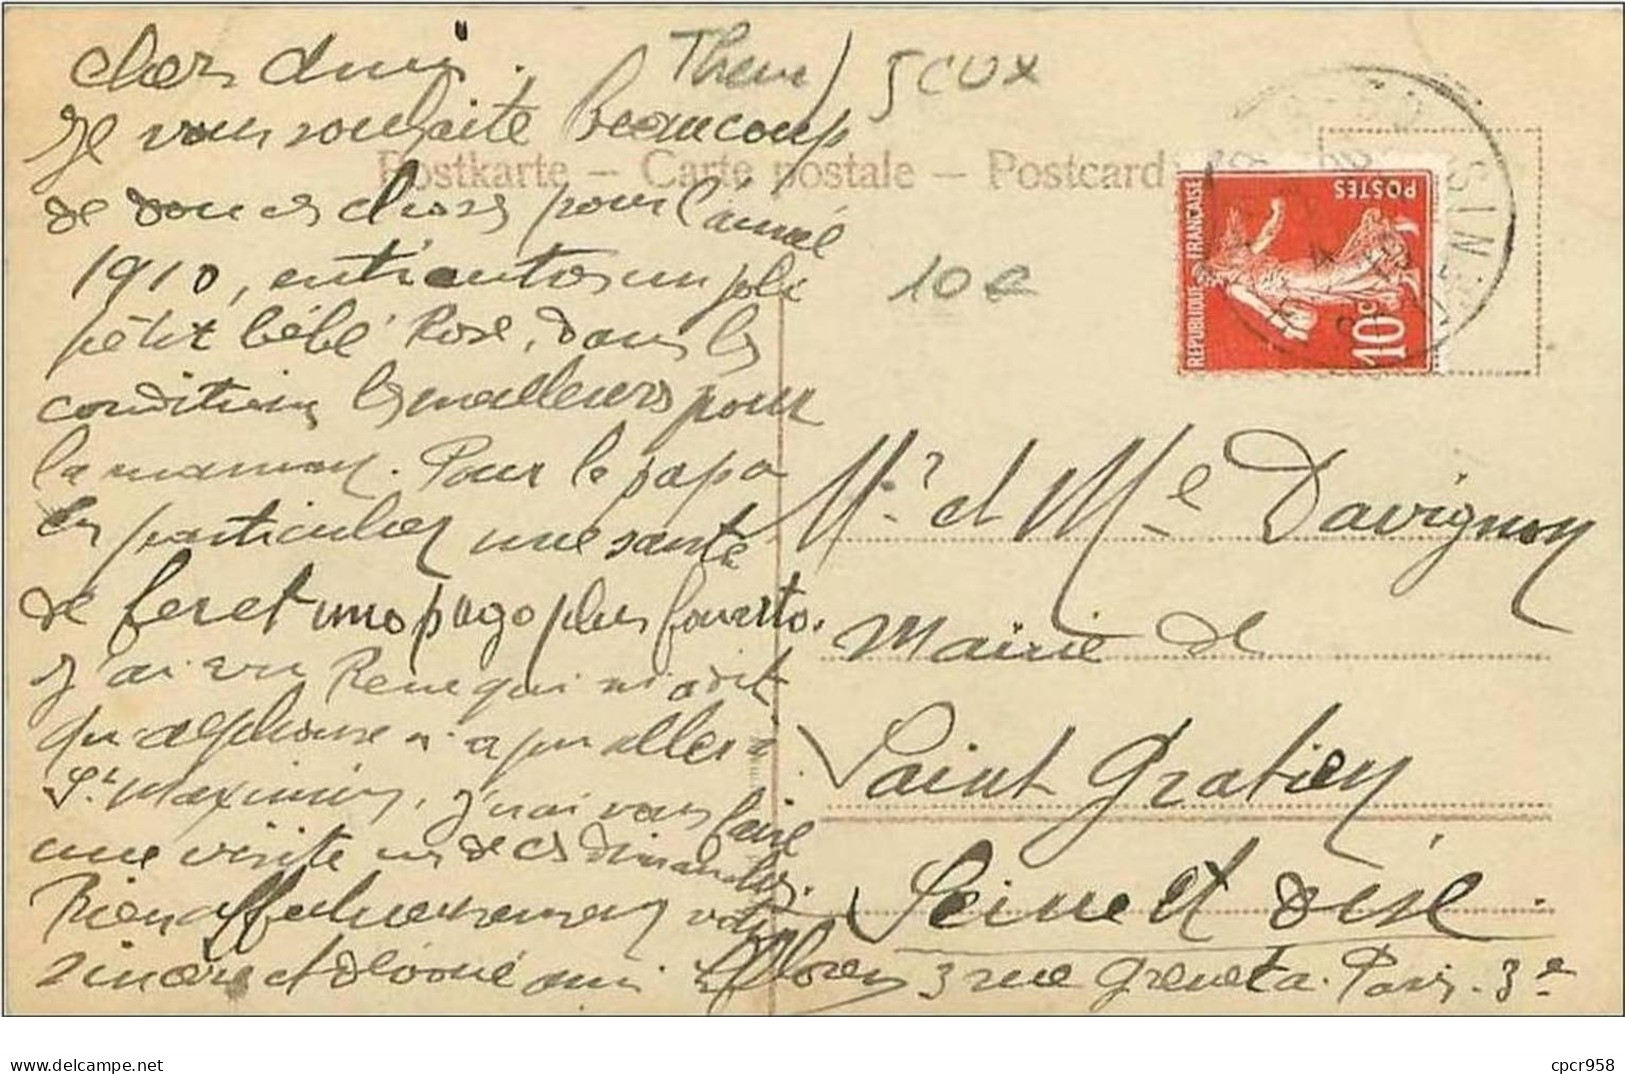 Chers Amis.
Je vous souhaite beaucoup
de douces choses pour l'année
1910, entr'autres un joli
petit bébé Rose, dans les
conditions les meilleurs pour
la maman. Pour le papa
en particulier une santé
de fer et un papa plus
J'ai vu Rene qui m'a dit
qu'alphonse n'a pu aller à
St Maximin, j'irai vous faire
une visite un de ces dimanches.
Bien affectueusement votre
sincère et dévoué ami
3 rue Greneta. Paris. 3e
Theme / JEUX
10e
Postkarte – Carte postale – Postcard
REPUBLIQUE FRANÇAISE
POSTES
10c
Mr et Me Davignon
Mairie de
Saint Gratien
Seine et Oise.
delcampe.net
cpcr958